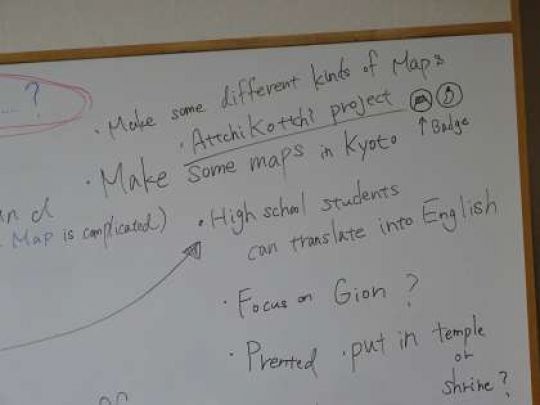 .... ?
· Make some different kinds of Maps
· Attchi Kottchi project
↑ Badge
· Make some maps in Kyoto
and
Map is complicated)
· High school students
can translate into English
· Focus on Gion ?
· Prented · put in temple
or
shrine ?